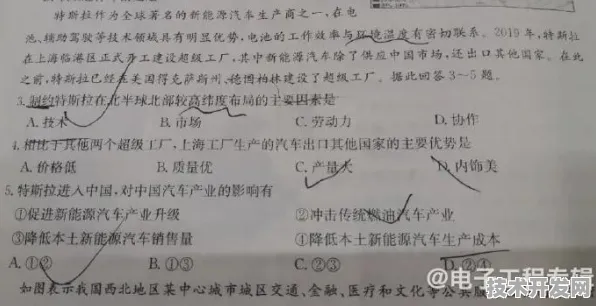 特斯拉作为全球著名的新能源汽车生产商之一,在电
池、辅助驾驶等技术领域具有明显优势,电池的工作效率与环境温度有密切联系。2019年,特斯拉
在上海临港区正式开工建设超级工厂,其中新能源汽车除了供应中国市场,还出口其他国家。在此
之前,特斯拉已经在美国得克萨斯州、德国柏林建设了超级工厂。据此回答3~5题。
3.制约特斯拉在北半球北部较高纬度布局的主要因素是
A.技术 B.市场 C.劳动力 D.协作
4.相比于其他两个超级工厂,上海工厂生产的汽车出口其他国家的主要优势是
A.价格低 B.质量优 C.产量大 D.内饰美
5.特斯拉进入中国,对中国汽车产业的影响有
①促进新能源汽车产业升级 ②冲击传统燃油汽车产业
③降低本土新能源汽车销售量 ④降低本土新能源汽车生产成本
A.①② B.①③ C.②③ D.②④
如图表示我国西北地区某中心城市城区交通、金融、医疗和文化等公共
@电子工程专辑
技术开发网